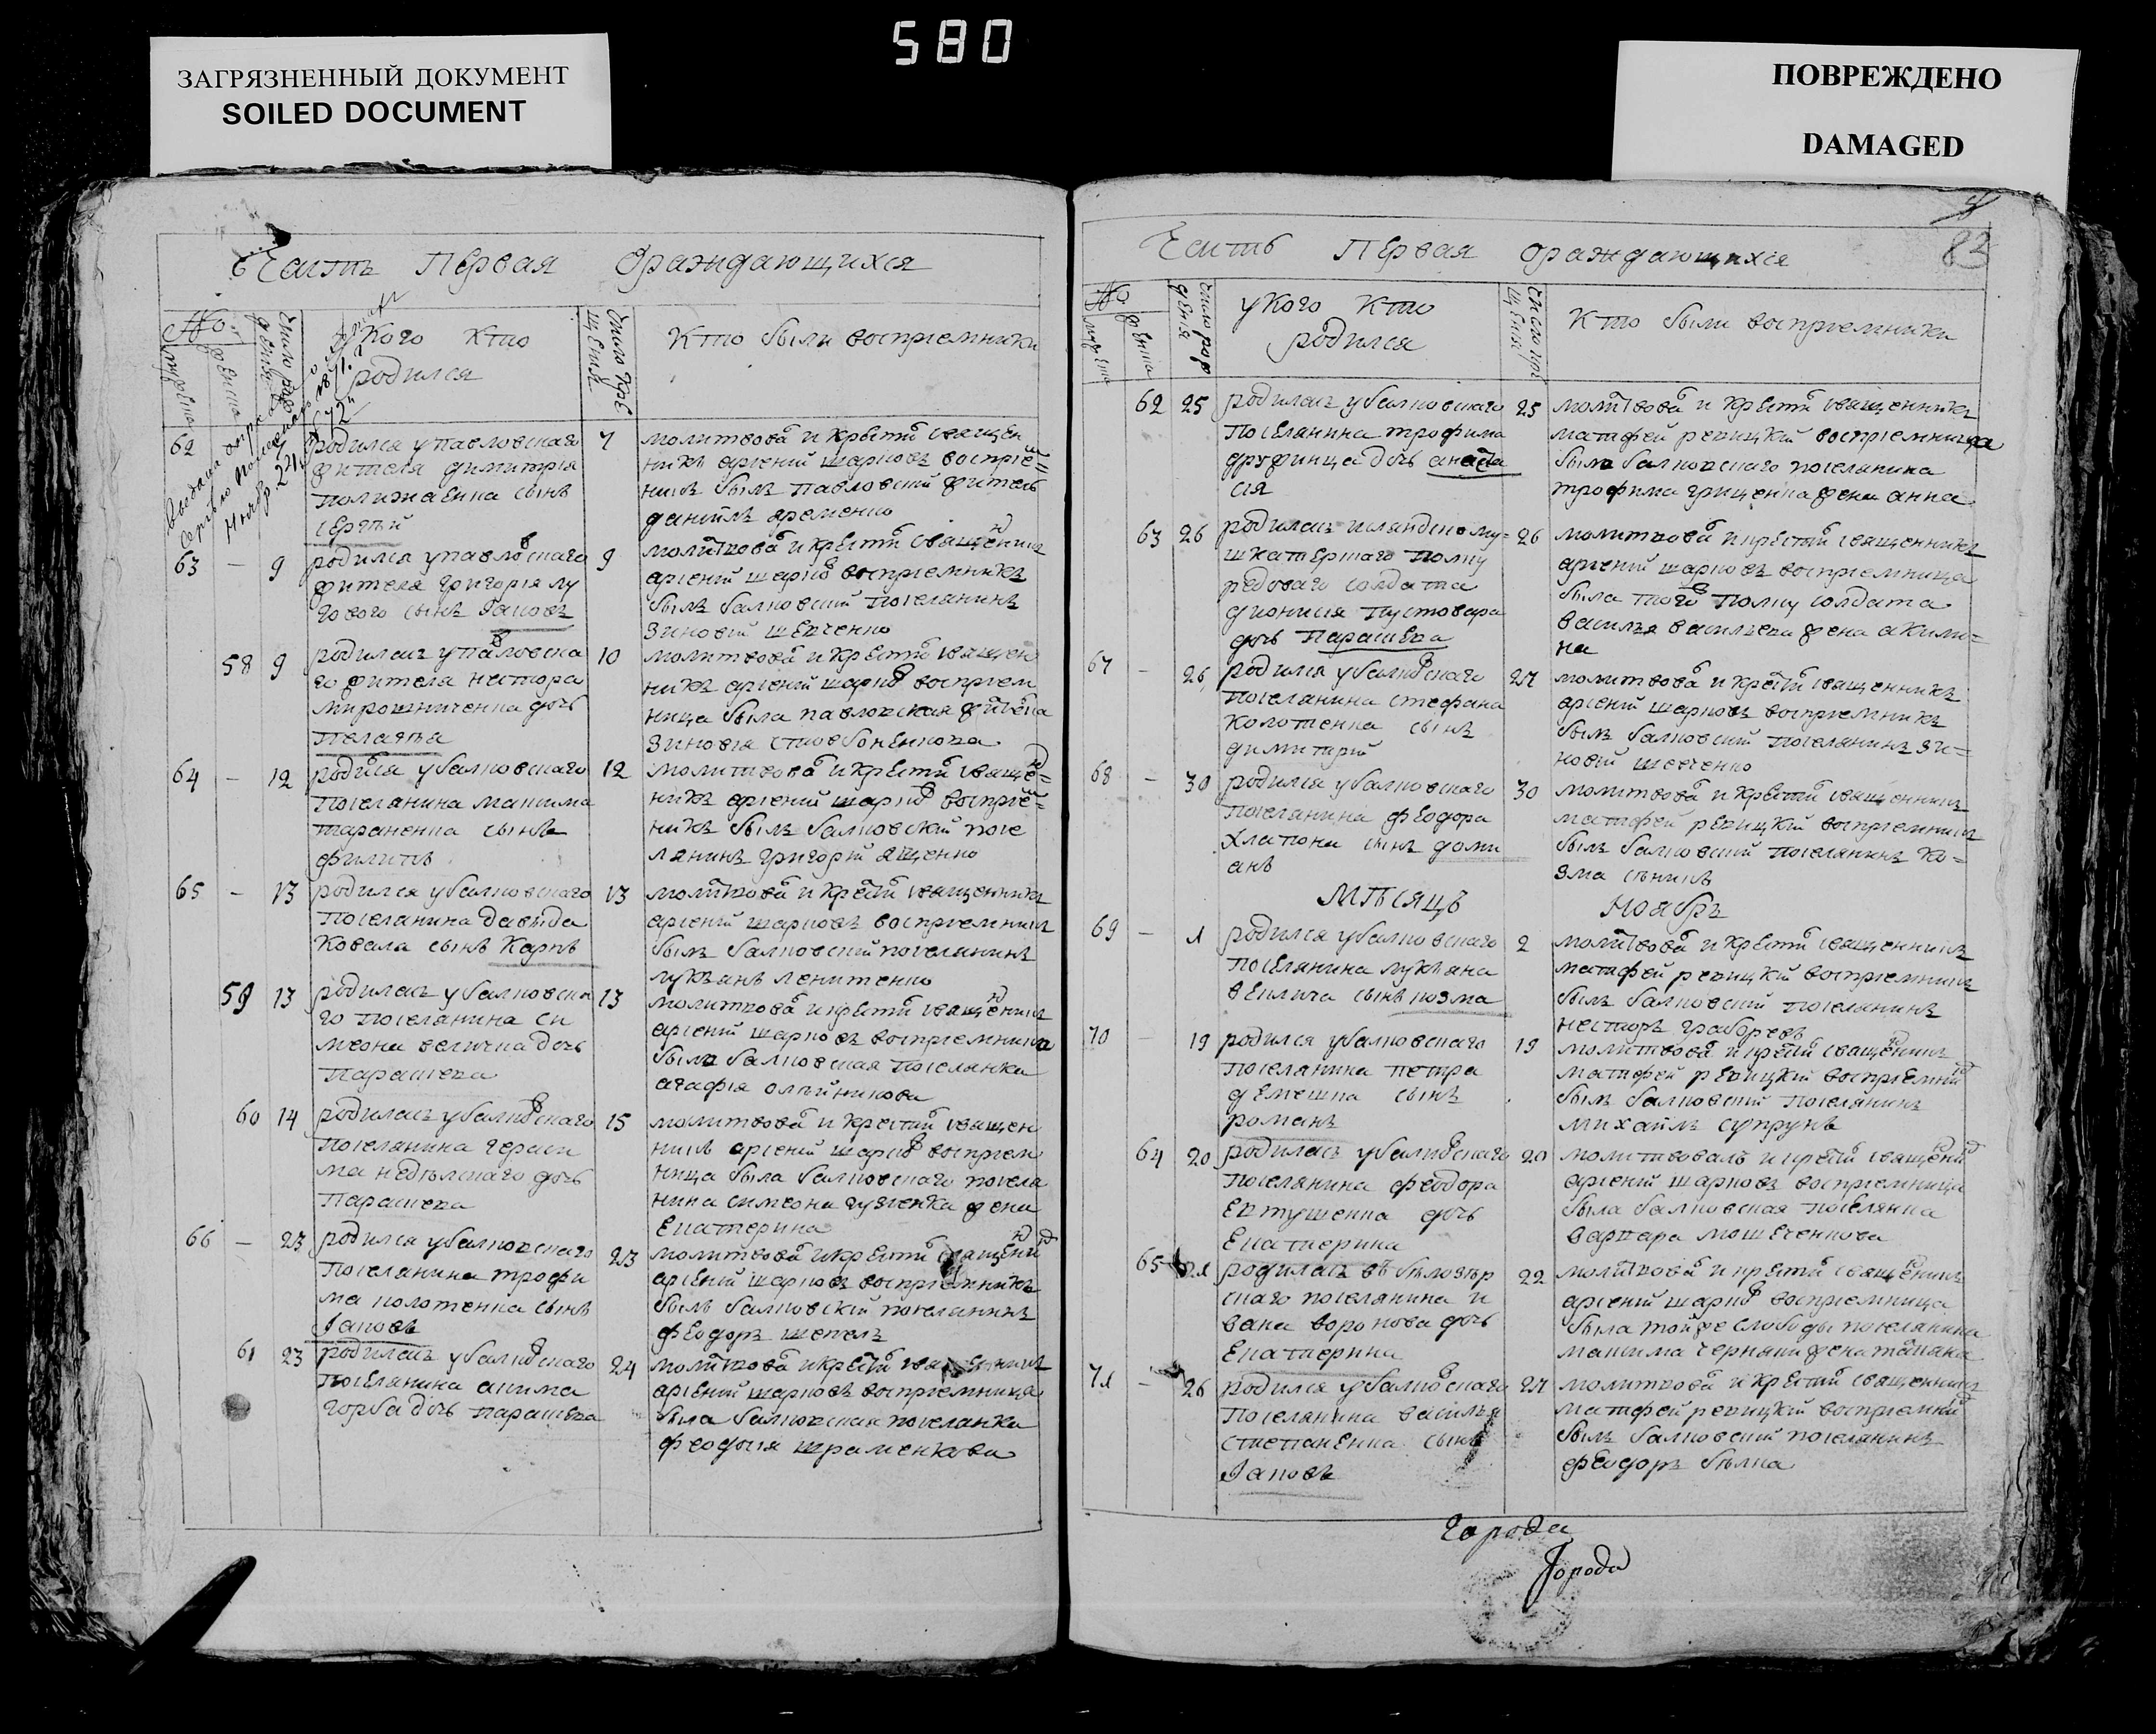 580
ЗАГРЯЗНЕННЫЙ ДОКУМЕНТ
SOILED DOCUMENT
ПОВРЕЖДЕНО
DAMAGED
Часть Первая Ораждающихся
No
у Кого Кто
родился
Кто были восприемники
62 7
родился упавловскаго
жителя димитрія
сынъ
сергѣй
молитвова и крести священ
никъ арсеній шарповъ восприе
никъ былъ павловскій житель
даніилъ яременко
63 – 9 9
родился упавловскаго
жителя григорія лу
гового сынъ Іаковъ
молитвова и крести священикъ
арсеній шарпов восприемникъ
былъ балковскій поселянинъ
зиновій шевченко
58 9 10
родилась упавловска
го жителя нестора
мирошниченка дочь
Пелагѣа
молитвова и крести священ
никъ арсеній шарпов восприем
ница была павловская
зиновія
64 – 12 12
родился убалковскаго
поселянина максима
тараненка сынъ
филипъ
молитвова и крести священ=
никъ арсеній шарпов восприе=
никъ былъ балковскій посе
лянинъ григорій ященко
65 – 13 13
родился убалковскаго
поселянина давида
Коваля сынъ Карпъ
молитвова и крести священникъ
арсеній шарповъ восприемникъ
былъ балковскій поселянинъ
лукьянъ
59 13 13
родилась убалковска
го поселянина си
меона величка дочь
Парашева
молитвова и крести священикъ
арсеній шарповъ восприемница
была балковская поселянка
агафія олѣйникова
60 14 15
родилась убалковскаго
поселянина гераси
ма недѣлскаго дочь
Парашева
молитвова и крести священ
никъ арсеній шарпов восприем
ница была балковскаго поселя
нина симеона жена
Екатерина
66 – 23 23
родился убалковскаго
поселянина трофи
ма колотенка сынъ
Іаковъ
молитвова икрести священи
арсеній шарповъ восприемникъ
былъ балковскій поселянинъ
феодоръ шепель
61 23 24
родилась убалковскаго
поселянина акима
горба дочь парашева
молитвова икрести священникъ
арсеній шарповъ восприемница
была балковская поселянка
феодосія шраменкова
Часть Первая Ораждающихся
83
No
укого Кто
родился
Кто были восприемники
62 25 25
родилась убалковскаго
поселянина трофима
дружинца дочь анаста
сія
молитвова и крести священникъ
матфей ревицкій восприемница
была балковскаго поселянина
трофима грищенка жена анна
63 26 26
родилась исландскому=
шкатерскаго полку
редоваго солдата
дионисія пустовара
дочь Парашева
молитвова икрести священникъ
арсеній шарповъ восприемница
была того полку солдата
василья васильева жена акили=
на
67 – 26 27
родился убалковскаго
поселянина стефана
колотенка сынъ
димитрій
молитвова и крести священникъ
арсеній шарповъ восприемникъ
былъ балковскій поселянинъ зи=
новій шевченко
68 – 30 30
родился убалковскаго
поселянина феодора
хлапона сынъ доми
анъ
молитвова и крести священникъ
матфей ревицкій восприемникъ
былъ балковскій поселянинъ ко=
зма сѣникъ
Мѣсяцъ Ноябрь
69 – 1 2
родился убалковскаго
поселянина лукіана
величка сынъ козма
молитвова и крести священникъ
матфей ревицкій восприемникъ
былъ балковскій поселянинъ
несторъ
70 – 19 19
родился убалковскаго
поселянина петра
демешка сынъ
романъ
молитвова и крести священикъ
матфей ревицкій восприемни
былъ балковскій поселянинъ
михаилъ супрунъ
64 20 20
родилась убалковскаго
поселянина феодора
евтушенка дочь
Екатерина
молитвовалъ и крести священи
арсеній шарповъ восприемница
была балковская поселянка
варвара
65 22
родилась вбѣлозѣр
скаго поселянина и
вана воронова дочь
Екатерина
молитвова и крести священикъ
арсеній шарпов восприемница
была той же слободы поселянина
максима жена татіана
71 – 26 27
родился убалковскаго
поселянина василья
степаненка сынъ
Іаковъ
молитвова и крести священникъ
матфей ревицкій восприемни
былъ балковскій поселянинъ
феодоръ бѣлка
Города
Города